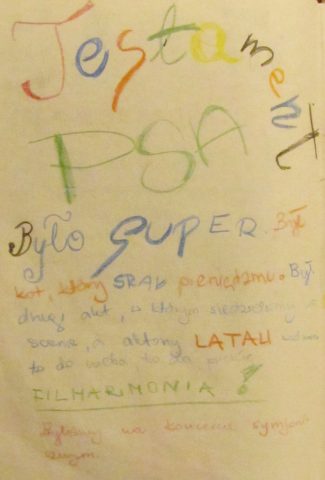 Testament
PSA
Było SUPER. Był
kot, który SRAŁ pieniędzmi. Był
drugi akt, w którym siedzieliśmy
scenie, a aktorzy LATALI
to do ucha, to dla
FILHARMONIA!
Byliśmy na koncercie symfoni
cznym.